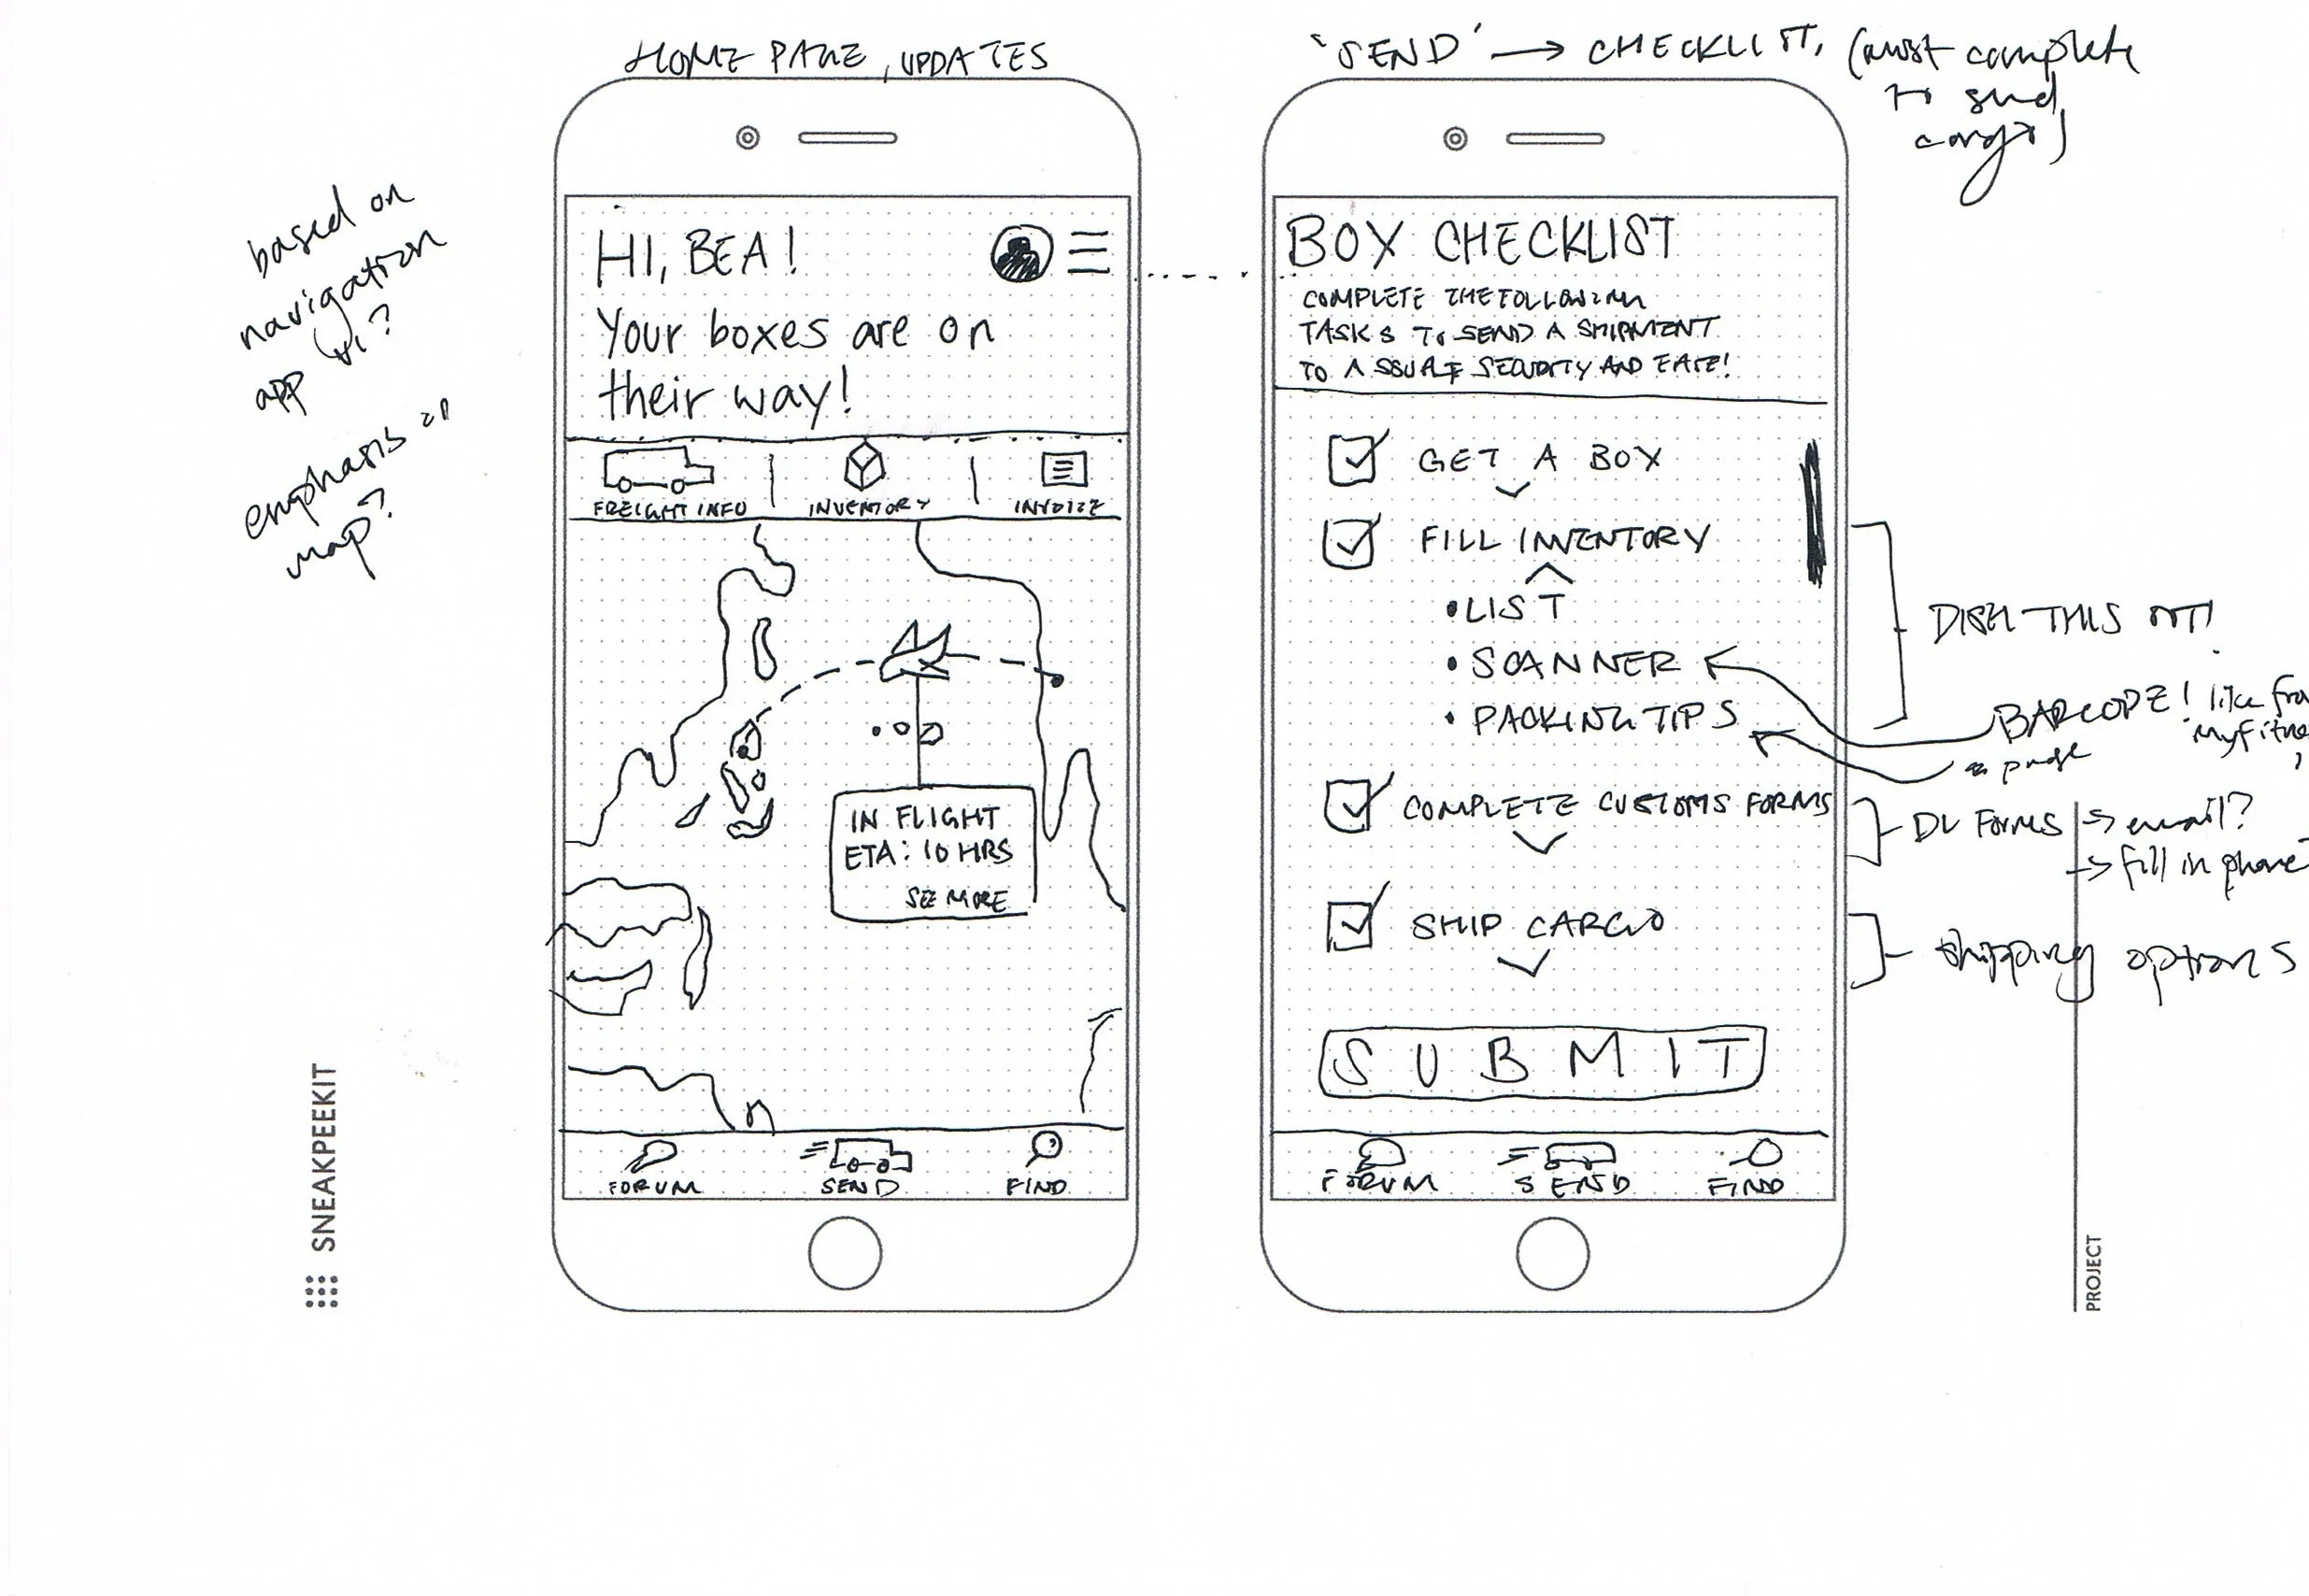 HOME PAGE, UPDATES
"SEND" → CHECKLIST, (must complete
to send
cargo)
based on
navigation
app UI?
emphasis on
map?
HI, BEA!
Your boxes are on
their way!
FREIGHT INFO
INVENTORY
INVOICE
IN FLIGHT
ETA: 10 HRS
SEE MORE
FORUM
SEND
FIND
BOX CHECKLIST
COMPLETE THE FOLLOWING
TASKS TO SEND A SHIPMENT
TO ASSURE SECURITY AND EASE!
GET A BOX
FILL INVENTORY
• LIST
• SCANNER
• PACKING TIPS
COMPLETE CUSTOMS FORMS
SHIP CARGO
SUBMIT
FORUM
SEND
FIND
THIS
BARCODE! like
page
DL FORMS → email?
→ fill in phone
shipping options
SNEAKPEEKIT
PROJECT